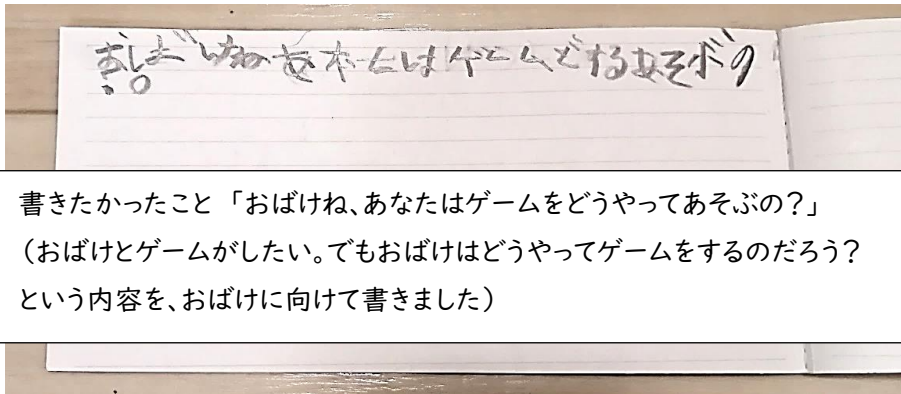 おばけねあホームはゲームどするあそぼの
書きたかったこと 「おばけね、あなたはゲームをどうやってあそぶの?」
(おばけとゲームがしたい。でもおばけはどうやってゲームをするのだろう?
という内容を、おばけに向けて書きました)